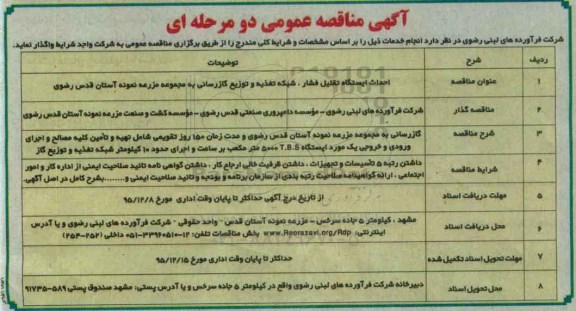 آگهی مناقصه عمومی دو مرحله ای
شرکت فرآورده های لبنی رضوی در نظر دارد انجام خدمات ذیل را بر اساس مشخصات و شرایط کلی مندرج را از طریق برگزاری مناقصه عمومی به شرکت واجد شرایط واگذار نماید.
ردیف شرح توضیحات
۱ عنوان مناقصه احداث ایستگاه تقلیل فشار ، شبکه تغذیه و توزیع گازرسانی به مجموعه مزرعه نمونه آستان قدس رضوی
۲ مناقصه گذار شرکت فرآورده های لبنی رضوی - مؤسسه دامپروری صنعتی قدس رضوی - مؤسسه کشت و صنعت مزرعه نمونه آستان قدس رضوی
۳ شرح مناقصه گازرسانی به مجموعه مزرعه نمونه آستان قدس رضوی و مدت زمان ۱۵۰ روز تقویمی شامل تهیه و تأمین کلیه مصالح و اجرای
ورودی و خروجی یک مورد ایستگاه T.B.S ۵۰۰۰ متر مکعب بر ساعت و اجرای حدود ۱۰ کیلومتر شبکه تغذیه و توزیع گاز
۴ شرایط مناقصه داشتن رتبه ۵ تأسیسات و تجهیزات ، داشتن ظرفیت خالی ارجاع کار ، داشتن گواهی نامه تائید صلاحیت ایمنی از اداره کار و امور
اجتماعی ، ارائه گواهینامه صلاحیت رتبه بندی از سازمان برنامه و بودجه و تائید صلاحیت ایمنی و........بشرح کامل در اصل آگهی.
۵ مهلت دریافت اسناد از تاریخ درج آگهی حداکثر تا پایان وقت اداری مورخ ۹۵/۱۲/۸
۶ محل دریافت اسناد مشهد ، کیلومتر ۵ جاده سرخس - مزرعه نمونه آستان قدس - واحد حقوقی - شرکت فرآورده های لبنی رضوی و یا آدرس
اینترنتی: www.Raorazavi.org/Rdp بخش مناقصات تلفن: ۱۲-۳۳۹۶۰۵۱۰-۰۵۱ داخلی (۲۵۲-۲۵۴)
۷ مهلت تحویل اسناد تکمیل شده حداکثر تا پایان وقت اداری مورخ ۹۵/۱۲/۱۵
۸ محل تحویل اسناد دبیرخانه شرکت فرآورده های لبنی رضوی واقع در کیلومتر ۵ جاده سرخس و یا آدرس پستی: مشهد صندوق پستی ۵۸۹-۹۱۷۳۵